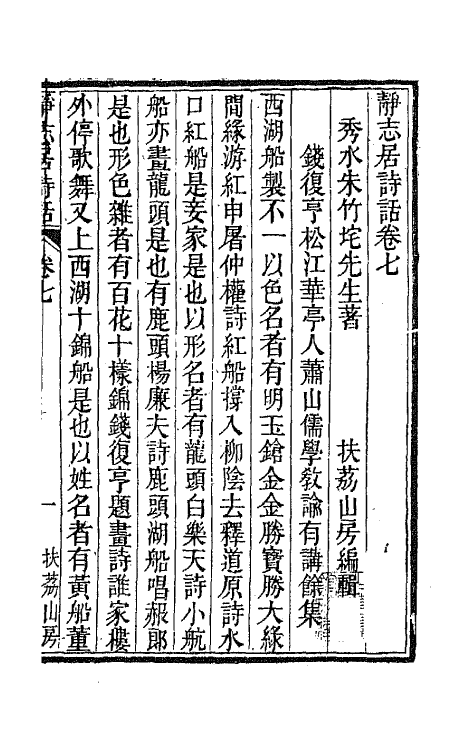 靜志居詩話卷七
秀水朱竹垞先生著　扶荔山房編輯
錢復亨松江華亭人蕭山儒學敎諭有講餘集
西湖船製不一以色名者有明玉鎗金金勝寶勝大綠
間綠游紅申屠仲權詩紅船撐入柳陰去釋道原詩水
口紅船是妾家是也以形名者有龍頭白樂天詩小航
船亦畫龍頭是也有鹿頭楊廉夫詩鹿頭湖船唱赧郎
是也形色雜者有百花十樣錦錢復亨題畫詩誰家樓
外停歌舞又上西湖十錦船是也以姓名者有黃船董
靜志居詩話　卷七　一　扶荔山房